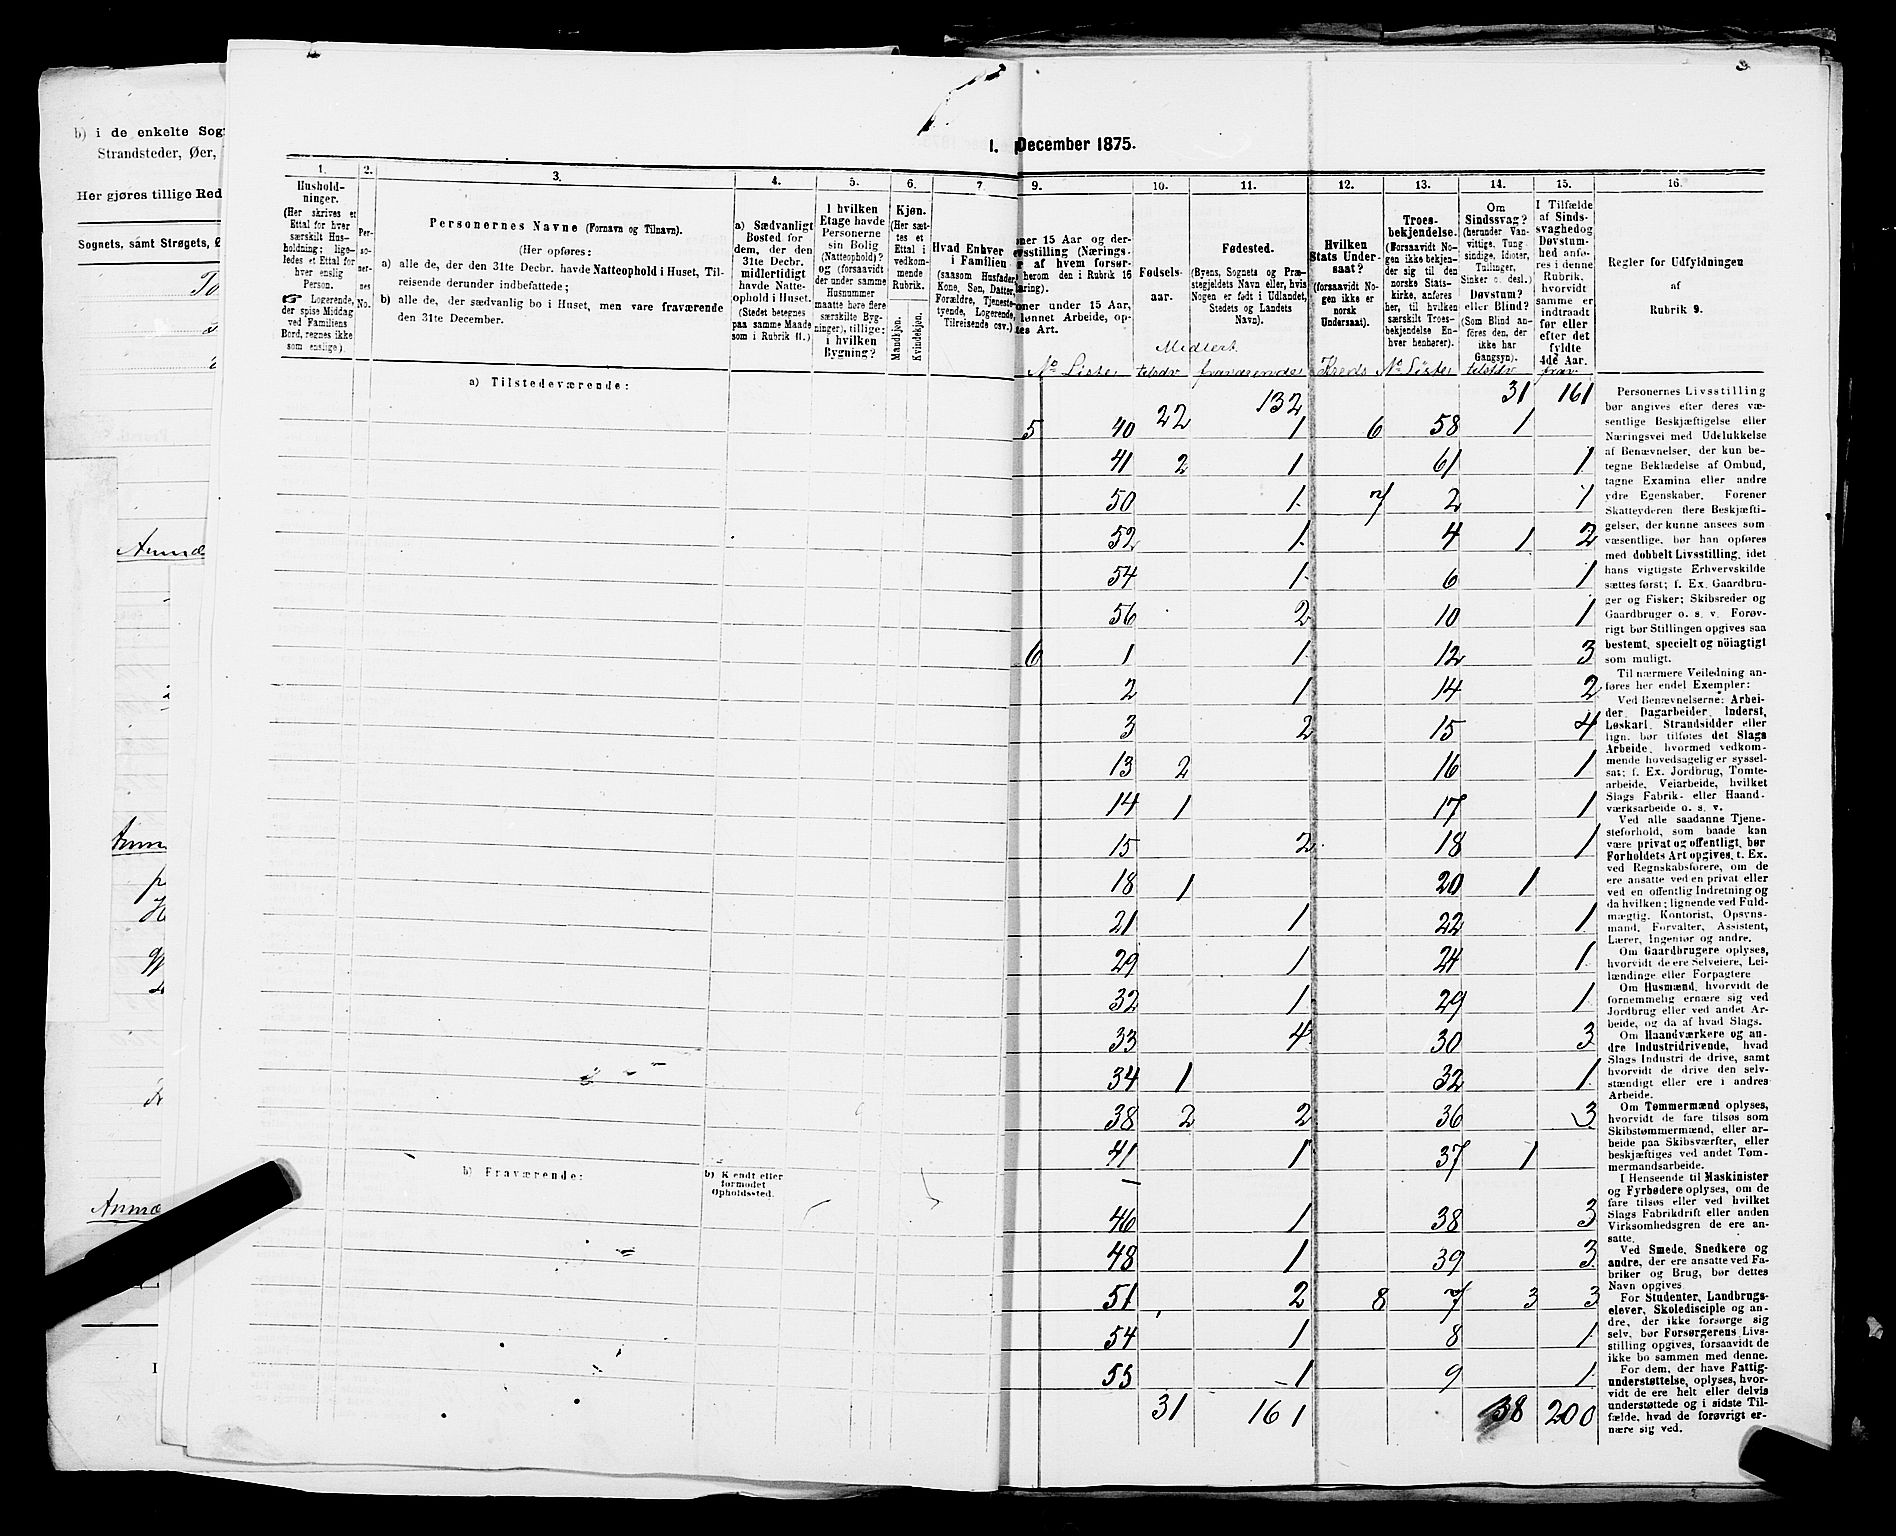 b) i de enkelte Sog
Strandsteder, Øer,
Her gjøres tillige Red
Sognets, samt Strøgets, Ø
1. December 1875.
1. 2. 3. 4. 5. 6. 7. 9. 10. 11. 12. 13. 14. 15. 16.
Hushold-
ninger.
(Her skrives et
Ettal for hver
særskilt Hus-
holdning; lige-
ledes et Ettal for
hver enslig
Person.
☞ Logerende,
der spise Middag
ved Familiens
Bord, regnes ikke
som enslige).
Per-
so-
ner-
nes
No.
Personernes Navne (Fornavn og Tilnavn).
(Her opføres:
a) alle de, der den 31te Decbr. havde Natteophold i Huset, Til-
reisende derunder indbefattede;
b) alle de, der sædvanlig bo i Huset, men vare fraværende
den 31te December.
a) Sædvanligt
Bosted for
dem, der den
31te Decbr.
midlertidigt
havde Natte-
ophold i Huset.
(Stedet betegnes
paa samme Maade
som i Rubrik 11.)
I hvilken
Etage havde
Personerne
sin Bolig
(Natteophold)?
og (forsaavidt
der under samme
Husnummer
maatte høre flere
særskilte Byg-
ninger), tillige:
i hvilken
Bygning?
Kjøn.
(Her sæt-
tes et
Ettal i
vedkom-
mende
Rubrik.
Mandkjøn.
Kvindekjøn.
Hvad Enhver
i Familien
(saasom Husfader,
Kone, Søn, Datter,
Forældre, Tjeneste-
tyende, Logerende,
Tilreisende osv.)
ner 15 Aar og der-
vsstilling (Nærings-
r af hvem forsør-
herom den i Rubrik 16
aring).
ner under 15 Aar,
lønnet Arbeide, op-
tes Art.
Fødsels-
aar.
Fødested.
(Byens, Sognets og Præ-
stegjeldets Navn eller, hvis
Nogen er født i Udlandet,
Stedets og Landets
Navn).
Hvilken
Stats Under-
saat?
(forsaavidt No-
gen ikke er
norsk
Undersaat).
Troes-
bekjendelse.
(Forsaavidt No-
gen ikke bekjen-
der sig til den
norske Stats-
kirke, anføres
her, til hvilken
særskilt Troes-
bekjendelse En-
hver henhører).
Om
Sindssvag?
(herunder Van-
vittige, Tung
sindige, Idioter,
Tullinger,
Sinker o. desl.)
Døvstum?
eller Blind?
(Som Blind an-
føres den, der
ikke har
Gangsyn).
I Tilfælde
af Sinds-
svaghed og
Døvstum-
hed anfø-
res i denne
Rubrik.
hvorvidt
samme er
indtraadt
før eller
efter det
fyldte
4de Aar.
Regler for Udfyldningen
af
Rubrik 9.
Midlert.
No Liste tilstdv fraværende Kreds No Liste tilstdv frav
a) Tilstedeværende:
22 132 31 161
5 40 1 6 58 1
41 2 1 61 1
50 1 7 2 1
52 1 4 1 2
54 1 6 1
56 2 10 1
6 1 1 12 3
2 1 14 2
3 2 15 4
13 2 16 1
14 1 17 1
15 2 18 1
18 1 20 1
21 1 22 1
29 1 24 1
32 1 29 1
33 4 30 3
34 1 32 1
38 2 2 36 3
41 1 37 1
b) Fraværende:
b) Kjendt eller
formodet
Opholdssted.
46 1 38 3
48 1 39 3
51 2 8 7 3 3
54 1 8 1
55 1 9 1
31 161 38 200
Personernes Livsstilling
bør angives efter deres væ-
sentlige Beskjæftigelse eller
Næringsvei med Udelukkelse
af Benævnelser, der kun be-
tegne Beklædelse af Ombud,
tagne Examina eller andre
ydre Egenskaber. Forener
Skatteyderen flere Beskjæfti-
gelser, der kunne ansees som
væsentlige, bør han opføres
med dobbelt Livsstilling, idet
hans vigtigste Erhvervskilde
sættes først; f. Ex. Gaardbru-
ger og Fisker; Skibsreder og
Gaardbruger o. s. v. Forøv-
rigt bør Stillingen opgives saa
bestemt, specielt og nöiagtigt
som muligt.
Til nærmere Veiledning an-
føres her endel Exempler:
Ved Benævnelserne: Arbei-
der, Dagarbeider, Inderst,
Løskarl, Strandsidder eller
lign. bør tilføies det Slags
Arbeide, hvormed vedkom-
mende hovedsagelig er syssel-
sat; f. Ex. Jordbrug, Tomte-
arbeide, Veiarbeide, hvilket
Slags Fabrik- eller Haand-
værksarbeide o. s. v.
Ved alle saadanne Tjene-
steforhold, som baade kan
være privat og offentligt, bør
Forholdets Art opgives, t. Ex.
ved Regnskabsførere, om de
ere ansatte ved en privat eller
ved en offentlig Indretning og
da hvilken; lignende ved Fuld-
mægtig, Kontorist, Opsyns-
mand, Forvalter, Assistent,
Lærer, Ingeniør og andre.
Om Gaardbrugere oplyses,
hvorvidt de ere Selveiere, Lei-
lændinge eller Forpagtere
Om Husmænd, hvorvidt de
fornemmelig ernære sig ved
Jordbrug eller ved andet Ar-
beide, og da af hvad Slags.
Om Haandværkere og an-
dre Industridrivende, hvad
Slags Industri de drive, samt
hvorvidt de drive den selv-
stændigt eller ere i andres
Arbeide.
Om Tømmermænd oplyses,
hvorvidt de fare tilsøs som
Skibstømmermænd, eller ar-
beide paa Skibsværfter, eller
beskjæftiges ved andet Tøm-
mermandsarbeide.
I Henseende til Maskinister
og Fyrbødere oplyses, om de
fare tilsøs eller ved hvilket
Slags Fabrikdrift eller anden
Virksomhedsgren de ere an-
satte.
Ved Smede, Snedkere og
andre, der ere ansatte ved Fa-
briker og Brug, bør dettes
Navn opgives
For Studenter, Landbrugs-
elever, Skoledisciple og an-
dre, der ikke forsørge sig
selv, bør Forsørgerens Livs-
stilling opgives, forsaavidt de
ikke bo sammen med denne.
For dem, der have Fattig-
understøttelse, oplyses, hvor-
vidt de ere helt eller delvis
understøttede og i sidste Til-
fælde, hvad de forøvrigt er-
nære sig ved.